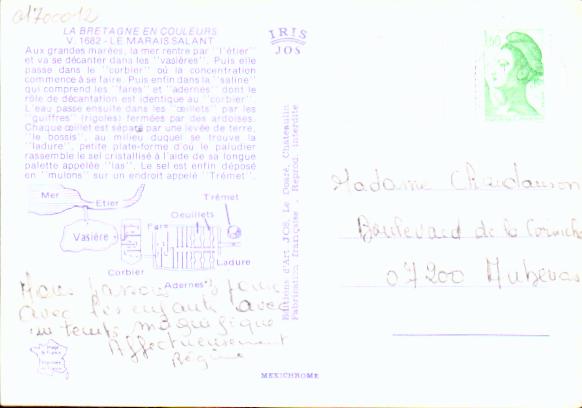 01700012
LA BRETAGNE EN COULEURS
V. 1682 - LE MARAIS SALANT
Aux grandes marées, la mer rentre par l'"étier"
et va se décanter dans les "vasières". Puis elle
passe dans le "corbier" où la concentration
commence à se faire. Puis enfin dans la "saline"
qui comprend les "fares" et "adernes" dont le
rôle de décantation est identique au "corbier".
L'eau passe ensuite dans les "œillets" par les
"guiffres" (rigoles) fermées par des ardoises.
Chaque œillet est séparé par une levée de terre,
"le bossis", au milieu duquel se trouve la
"ladure", petite plate-forme d'où le paludier
rassemble le sel cristallisé à l'aide de sa longue
palette appelée "las". Le sel est enfin déposé
en "mulons" sur un endroit appelé "Trémet".
Mer
Etier
Vasière
Corbier
Fare
Oeuillets
Adernes
Trémet
Ladure
avec les enfants avec
un temps magnifique
Affectueusement
Régine
IRIS
JOS
Editions d'Art JOS, Le Doaré, Chateaulin
Fabrication française, Reprod. interdite
MEXICHROME
1,60
Madame
Boulevard de la Corniche
07200 Aubenas